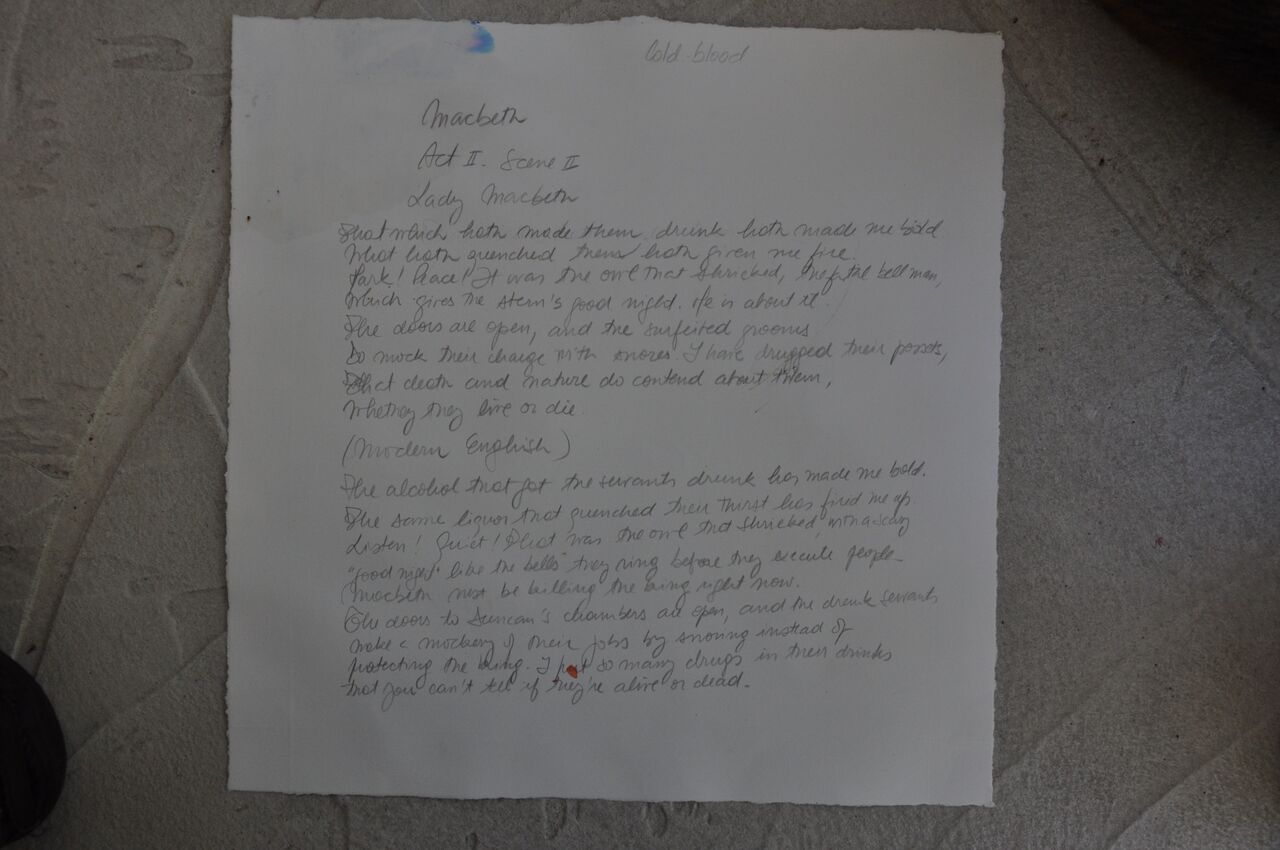 Cold blood
Macbeth
Act II. Scene II
Lady Macbeth
That which hath made them drunk hath made me bold
What hath quenched them hath given me fire.
Hark! Peace! It was the owl that shrieked, the fatal bell man,
Which gives the stern's good night. He is about it.
The doors are open, and the surfeited grooms
Do mock their charge with snores. I have drugged their possets,
That death and nature do contend about them,
Whether they live or die.
(Modern English)
The alcohol that got the servants drunk has made me bold.
The same liquor that quenched their thirst has fired me up.
Listen! Quiet! That was the owl that shrieked, with a scary
"good night" like the bells they ring before they execute people.
Macbeth must be killing the king right now.
The doors to Duncan's chambers are open, and the drunk servants
make a mockery of their jobs by snoring instead of
protecting the king. I put so many drugs in their drinks
that you can't tell if they're alive or dead.